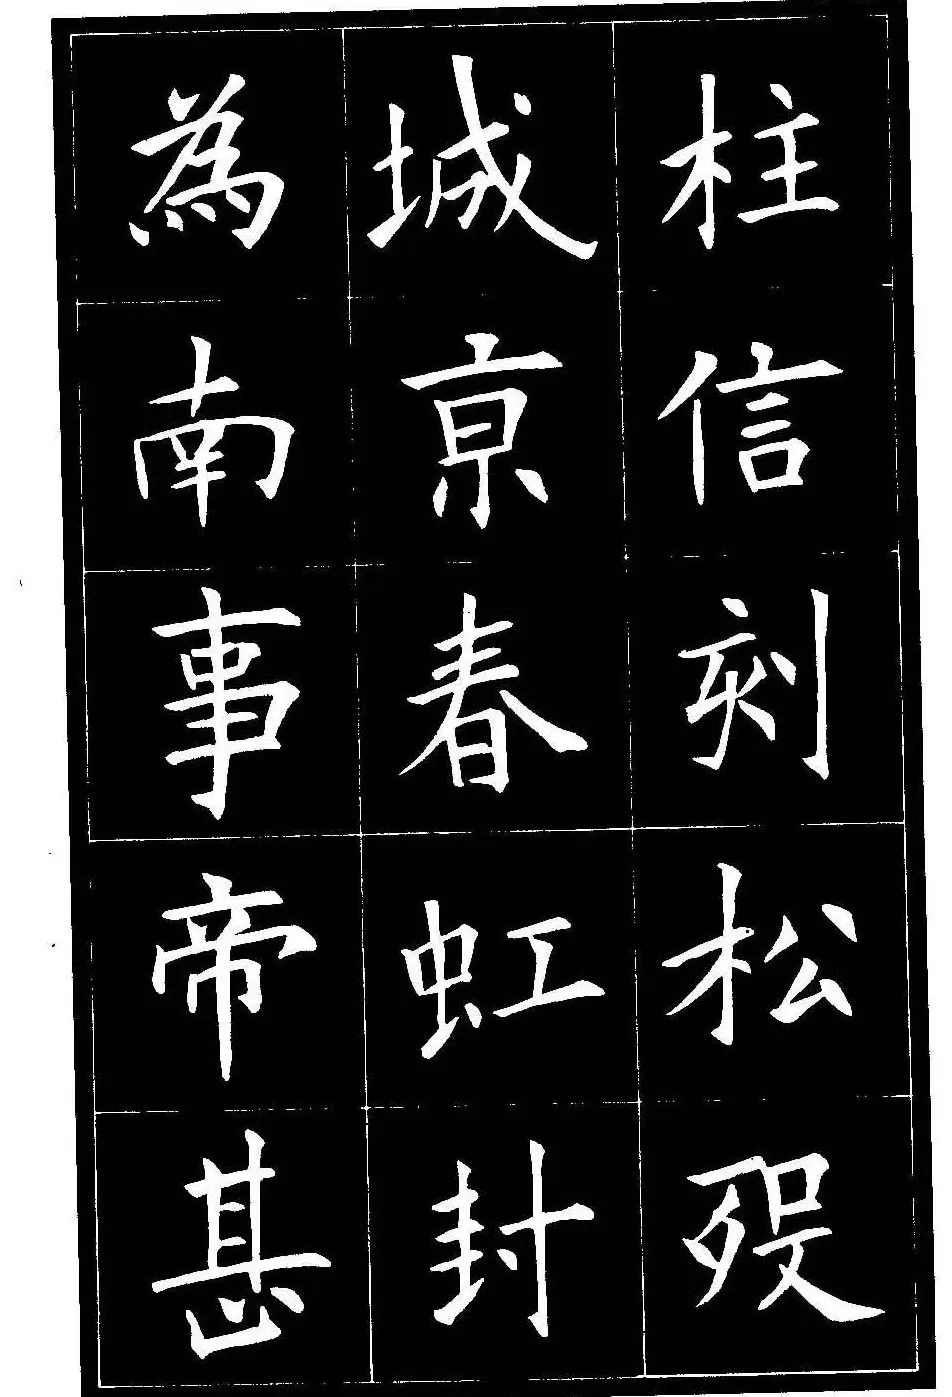 柱信刻松歿
城亰春虹封
為南事帝甚